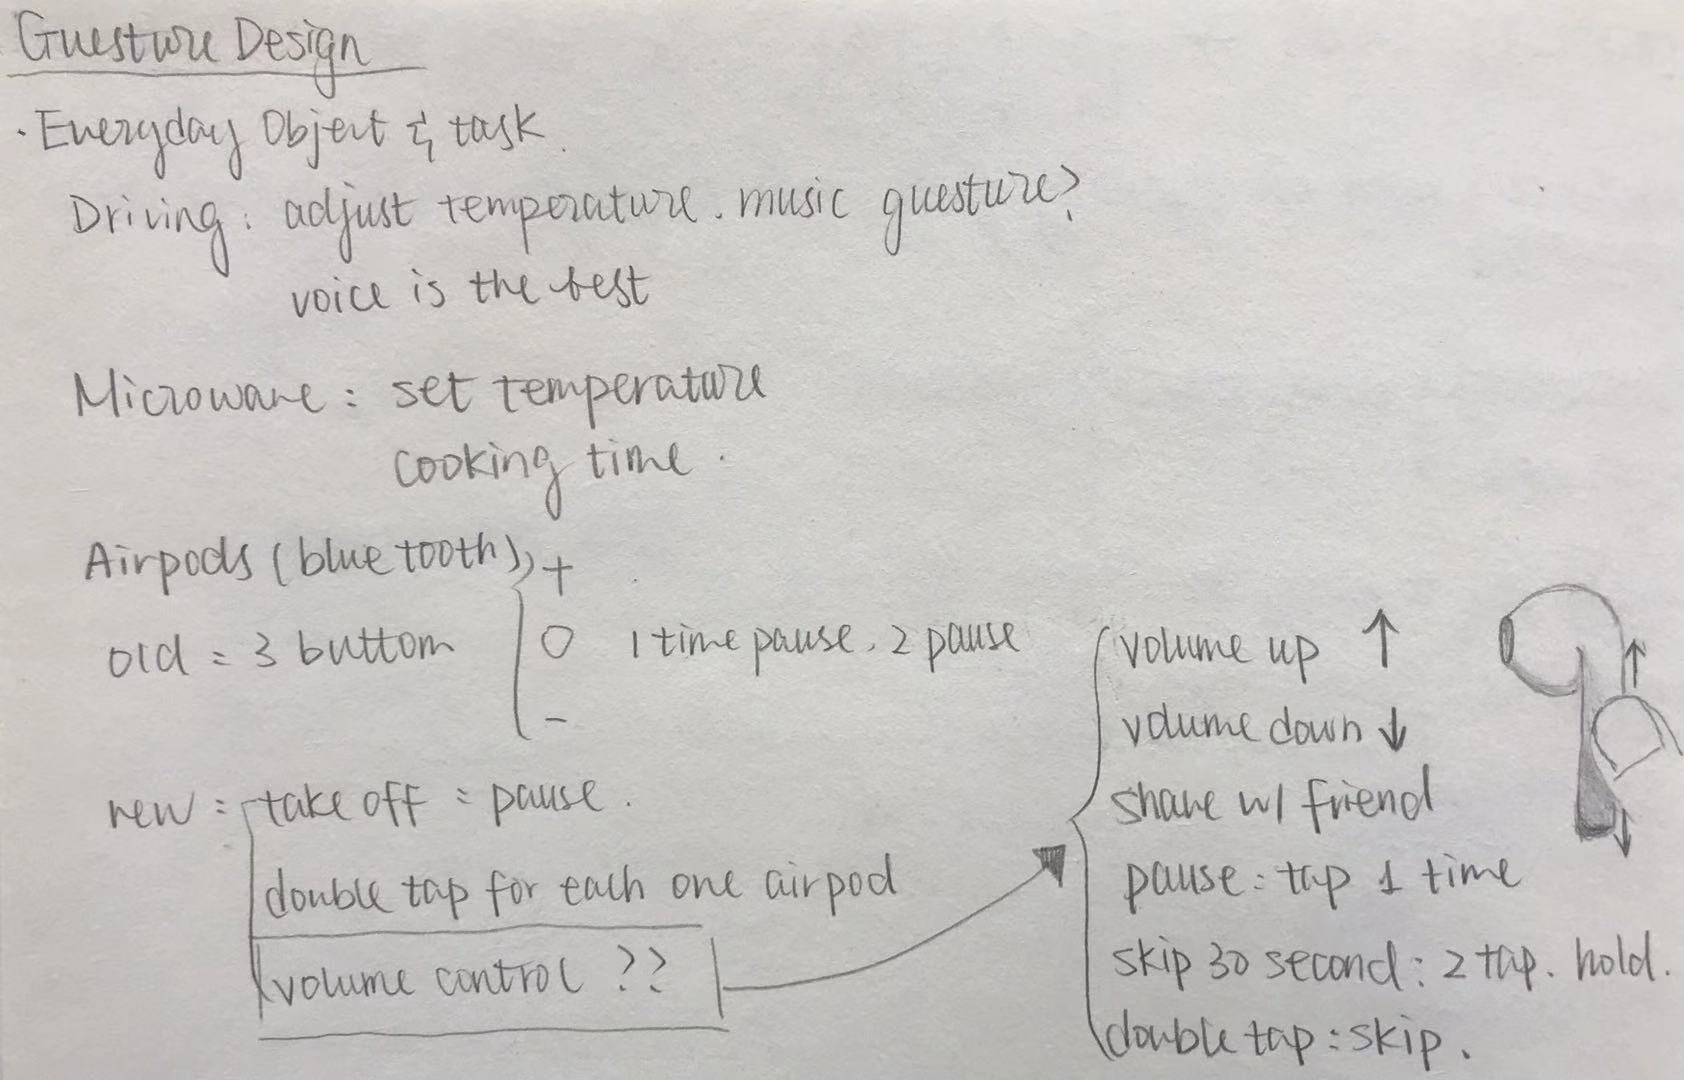 Guesture Design
· Everyday Object & task.
Driving: adjust temperature. music guesture?
voice is the best
Microwave: set temperature
cooking time.
Airpods (bluetooth),
old = 3 buttom { +
O 1 time pause. 2 pause
-
new = take off = pause.
double tap for each one airpod
volume control ??
volume up ↑
volume down ↓
share w/ friend
pause: tap 1 time
skip 30 second: 2 tap. hold.
double tap: skip.